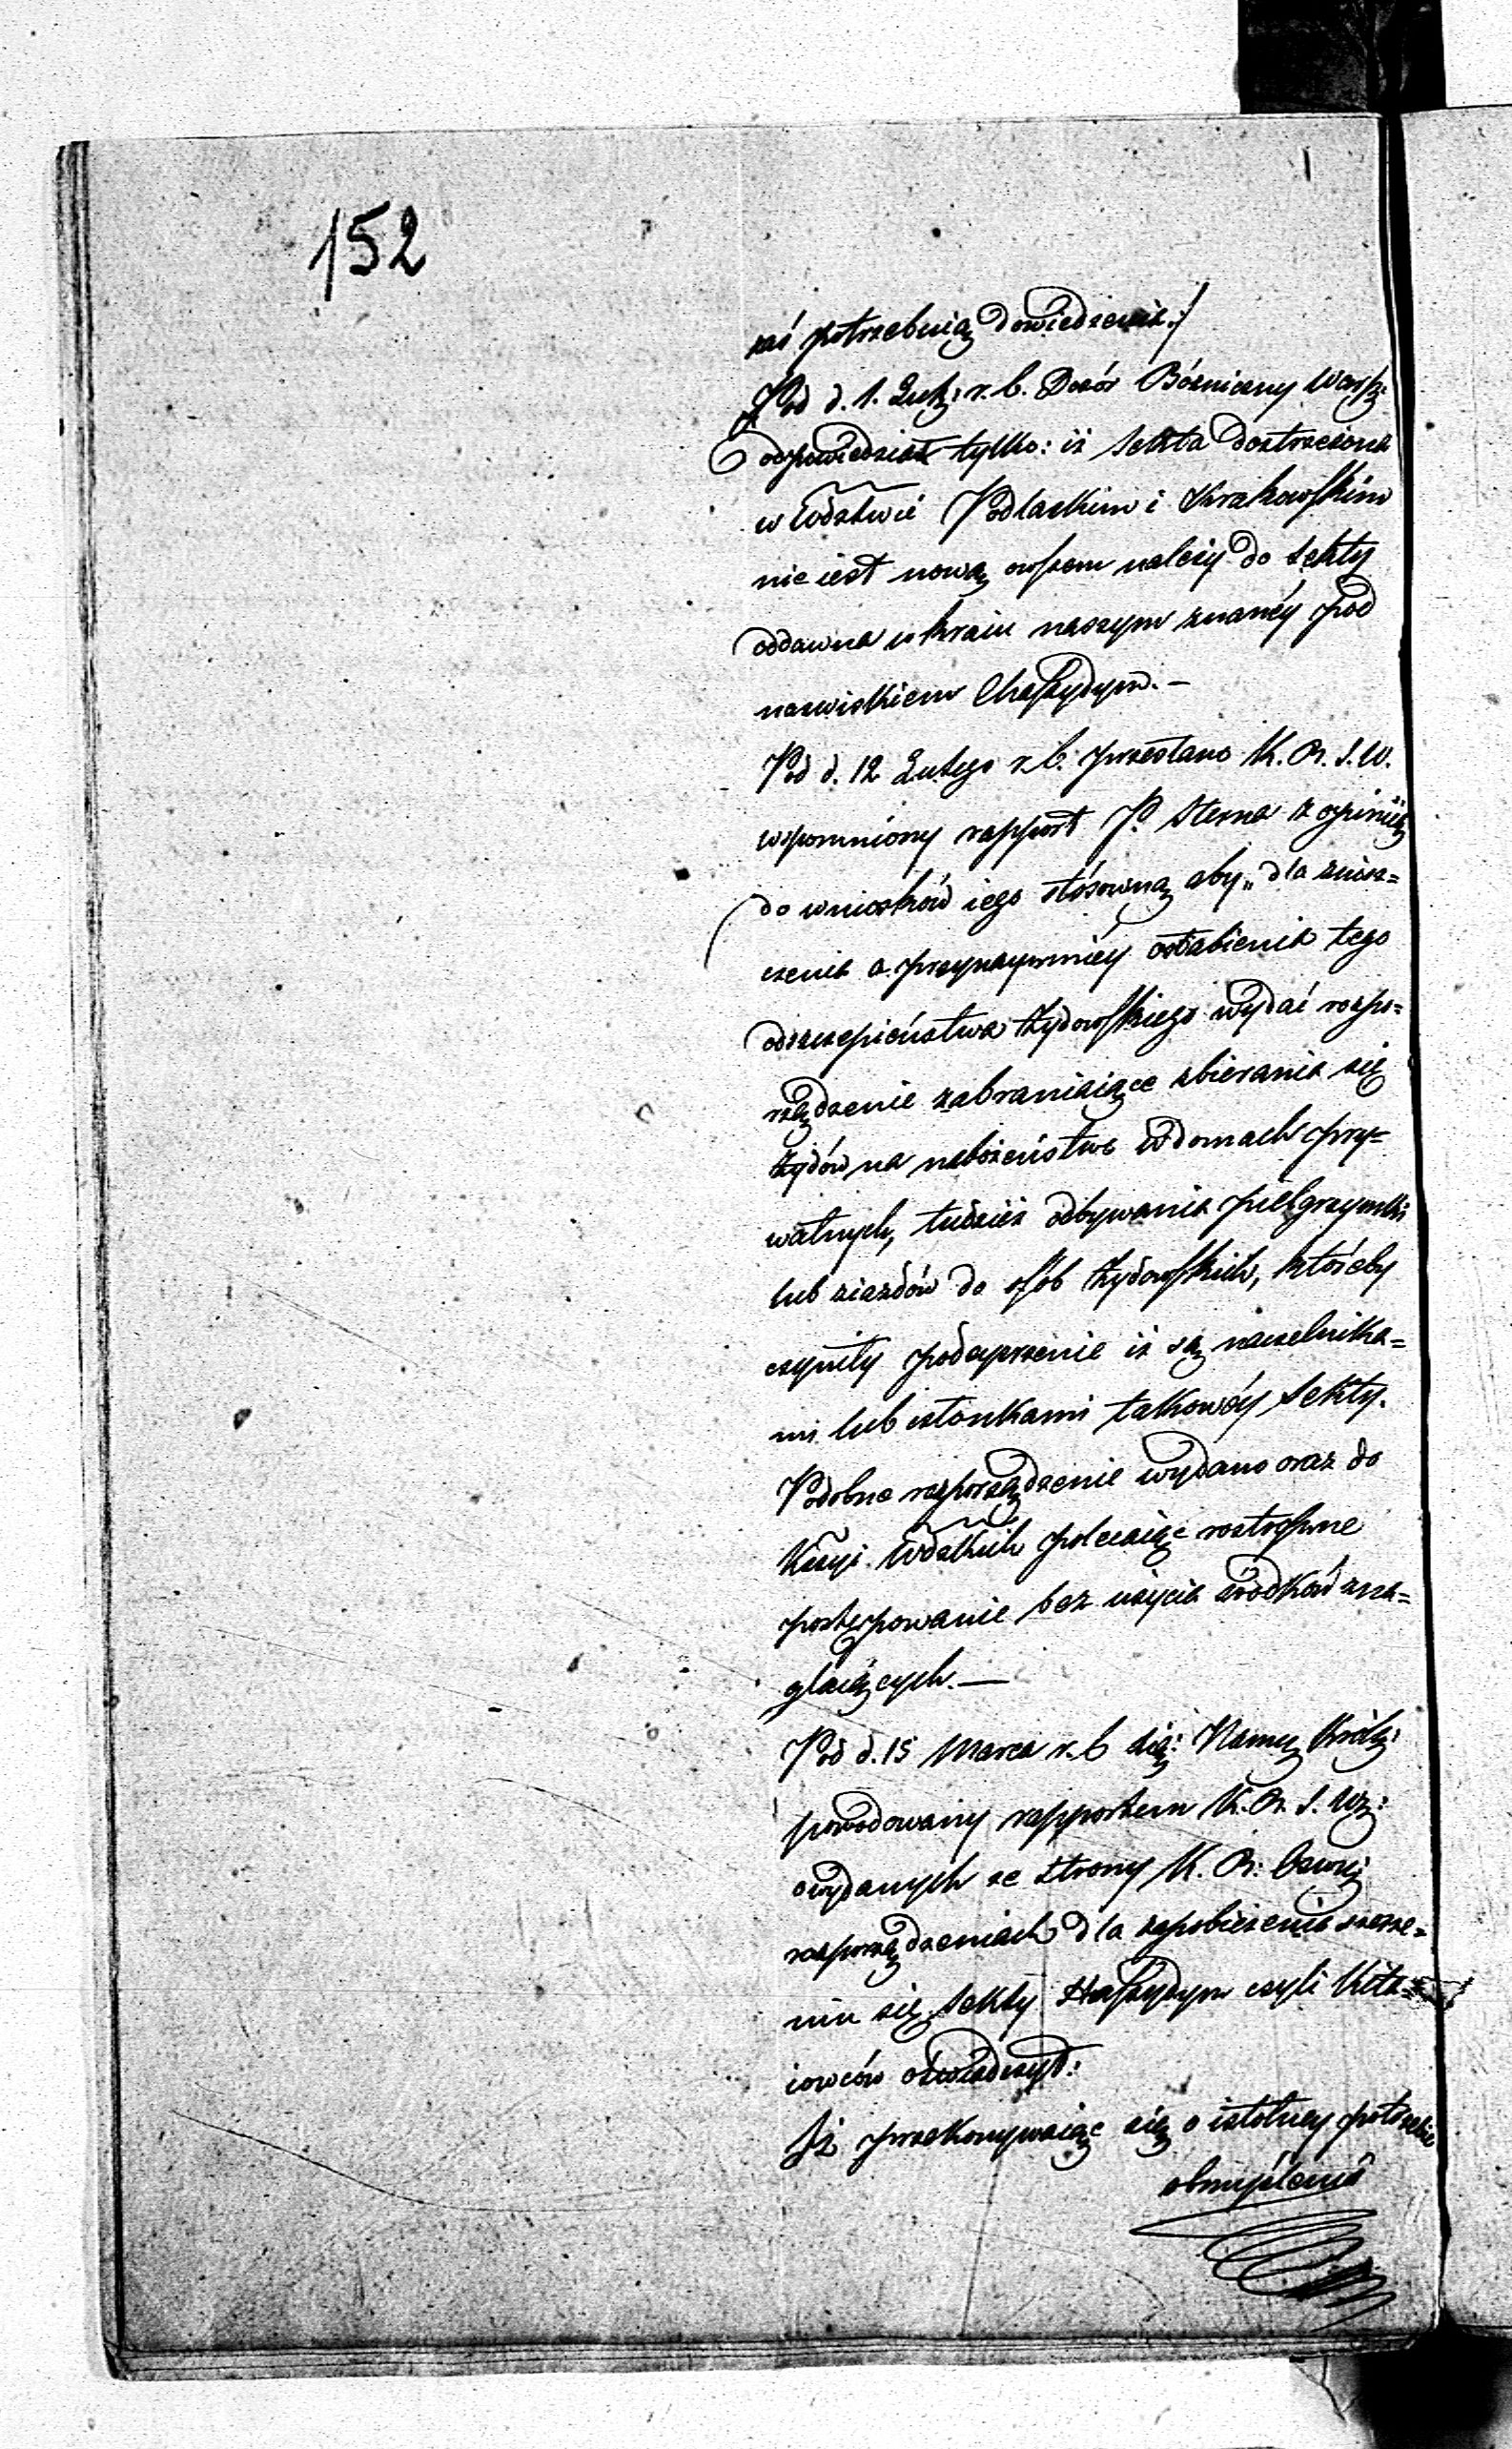 152
zaś potrzebuią dowiedzenia./
Pod d. 1. Lut: r. b. Dozór Bóżniczny Warsz:
odpowiedział tylko: iż Sekta dostrzeżona
w Wdztwie Podlaskim i Krakowskim
nie iest nową owszem należy do Sekty
oddawna w kraiu naszym znanéy pod
nazwiskiem Chassydym. –
Pod d. 12 Lutego r. b. przesłano K. R. S. W.
wspomniony rapport P. Sterna z opinią
do wniosków iego stósowną aby „dla znisz=
czenia a przynaymniéy osłabienia tego
odszczepieństwa Żydowskiego wydać rozpo=
rządzenie zabraniaiące zbierania się
Żydów na nabożeństwo w domach pry=
watnych, tudzież odbywania pielgrzymki
lub ziazdów do osób Żydowskich, któreby
czyniły podeyrzenie iż są naczelnika=
mi lub członkami takowéy Sekty.
Podobne rozporządzenie wydano oraz do
Kssyi Wdzkich polecaiąc roztropne
postępowanie bez użycia środków zna=
glaiących. —
Pod d. 15 Marca r. b Xią: Namies: Królz:
powodowany rapportem K. R. S. W:
o wydanych ze strony K. R.
rozporządzeniach dla zapobieżenia szerze=
niu się Sekty Hassydym czyli Kita=
iowców oświadczył:
Iż przekonywaiąc się o istotney potrzebie
obmyślenia